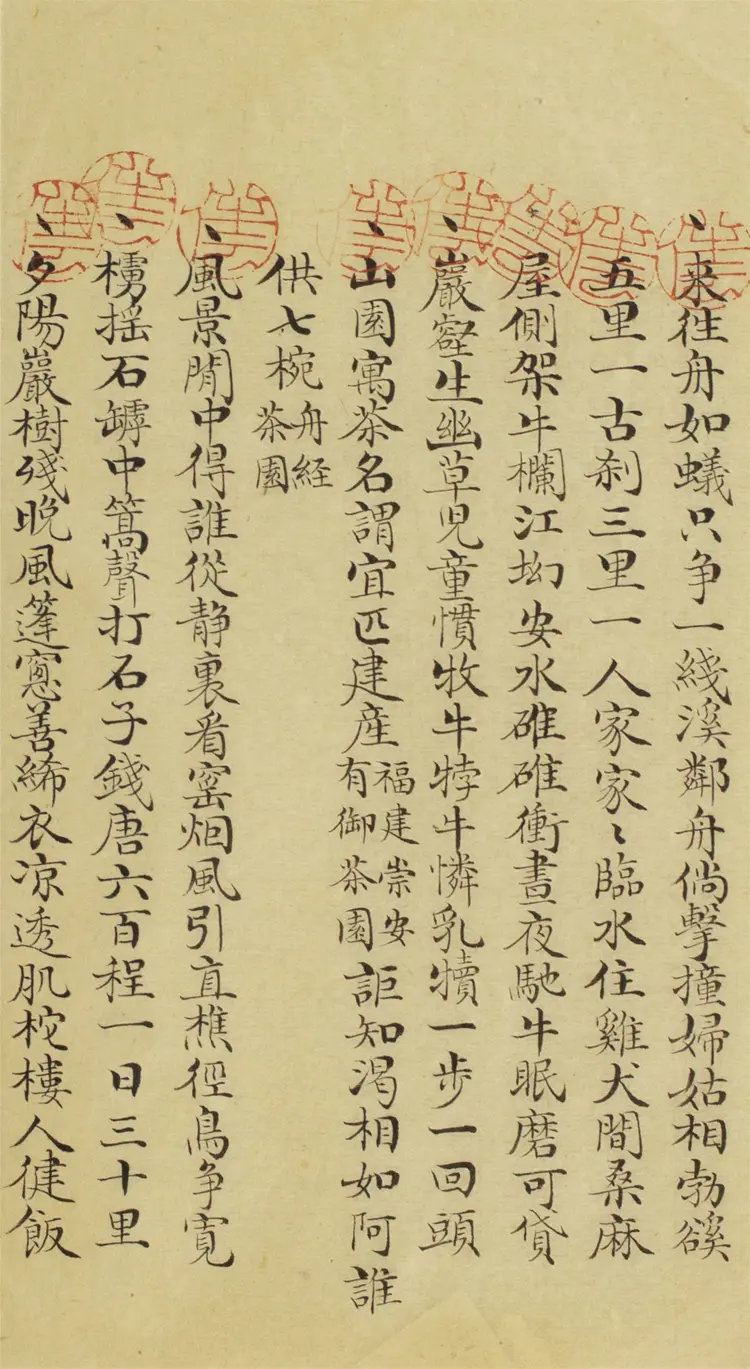 、来往舟如蟻只争一綫溪鄰舟倘擊撞婦姑相勃谿
五里一古刹三里一人家家〻臨水住雞犬間桑麻
屋側架牛欄江坳安水碓碓衝晝夜馳牛眠磨可貸
、巖壑生幽草児童慣牧牛牸牛憐乳犢一步一回頭
、山園寓茶名謂宜匹建産福建崇安有御茶園詎知渴相如阿誰
供七椀舟経茶園
、風景閒中得誰從静裏看窑烟風引直樵徑鳥争寛
、櫓摇石罅中篙聲打石子錢唐六百程一日三十里
、夕陽巖樹残晚風篷窓善絺衣凉透肌柁樓人健飯